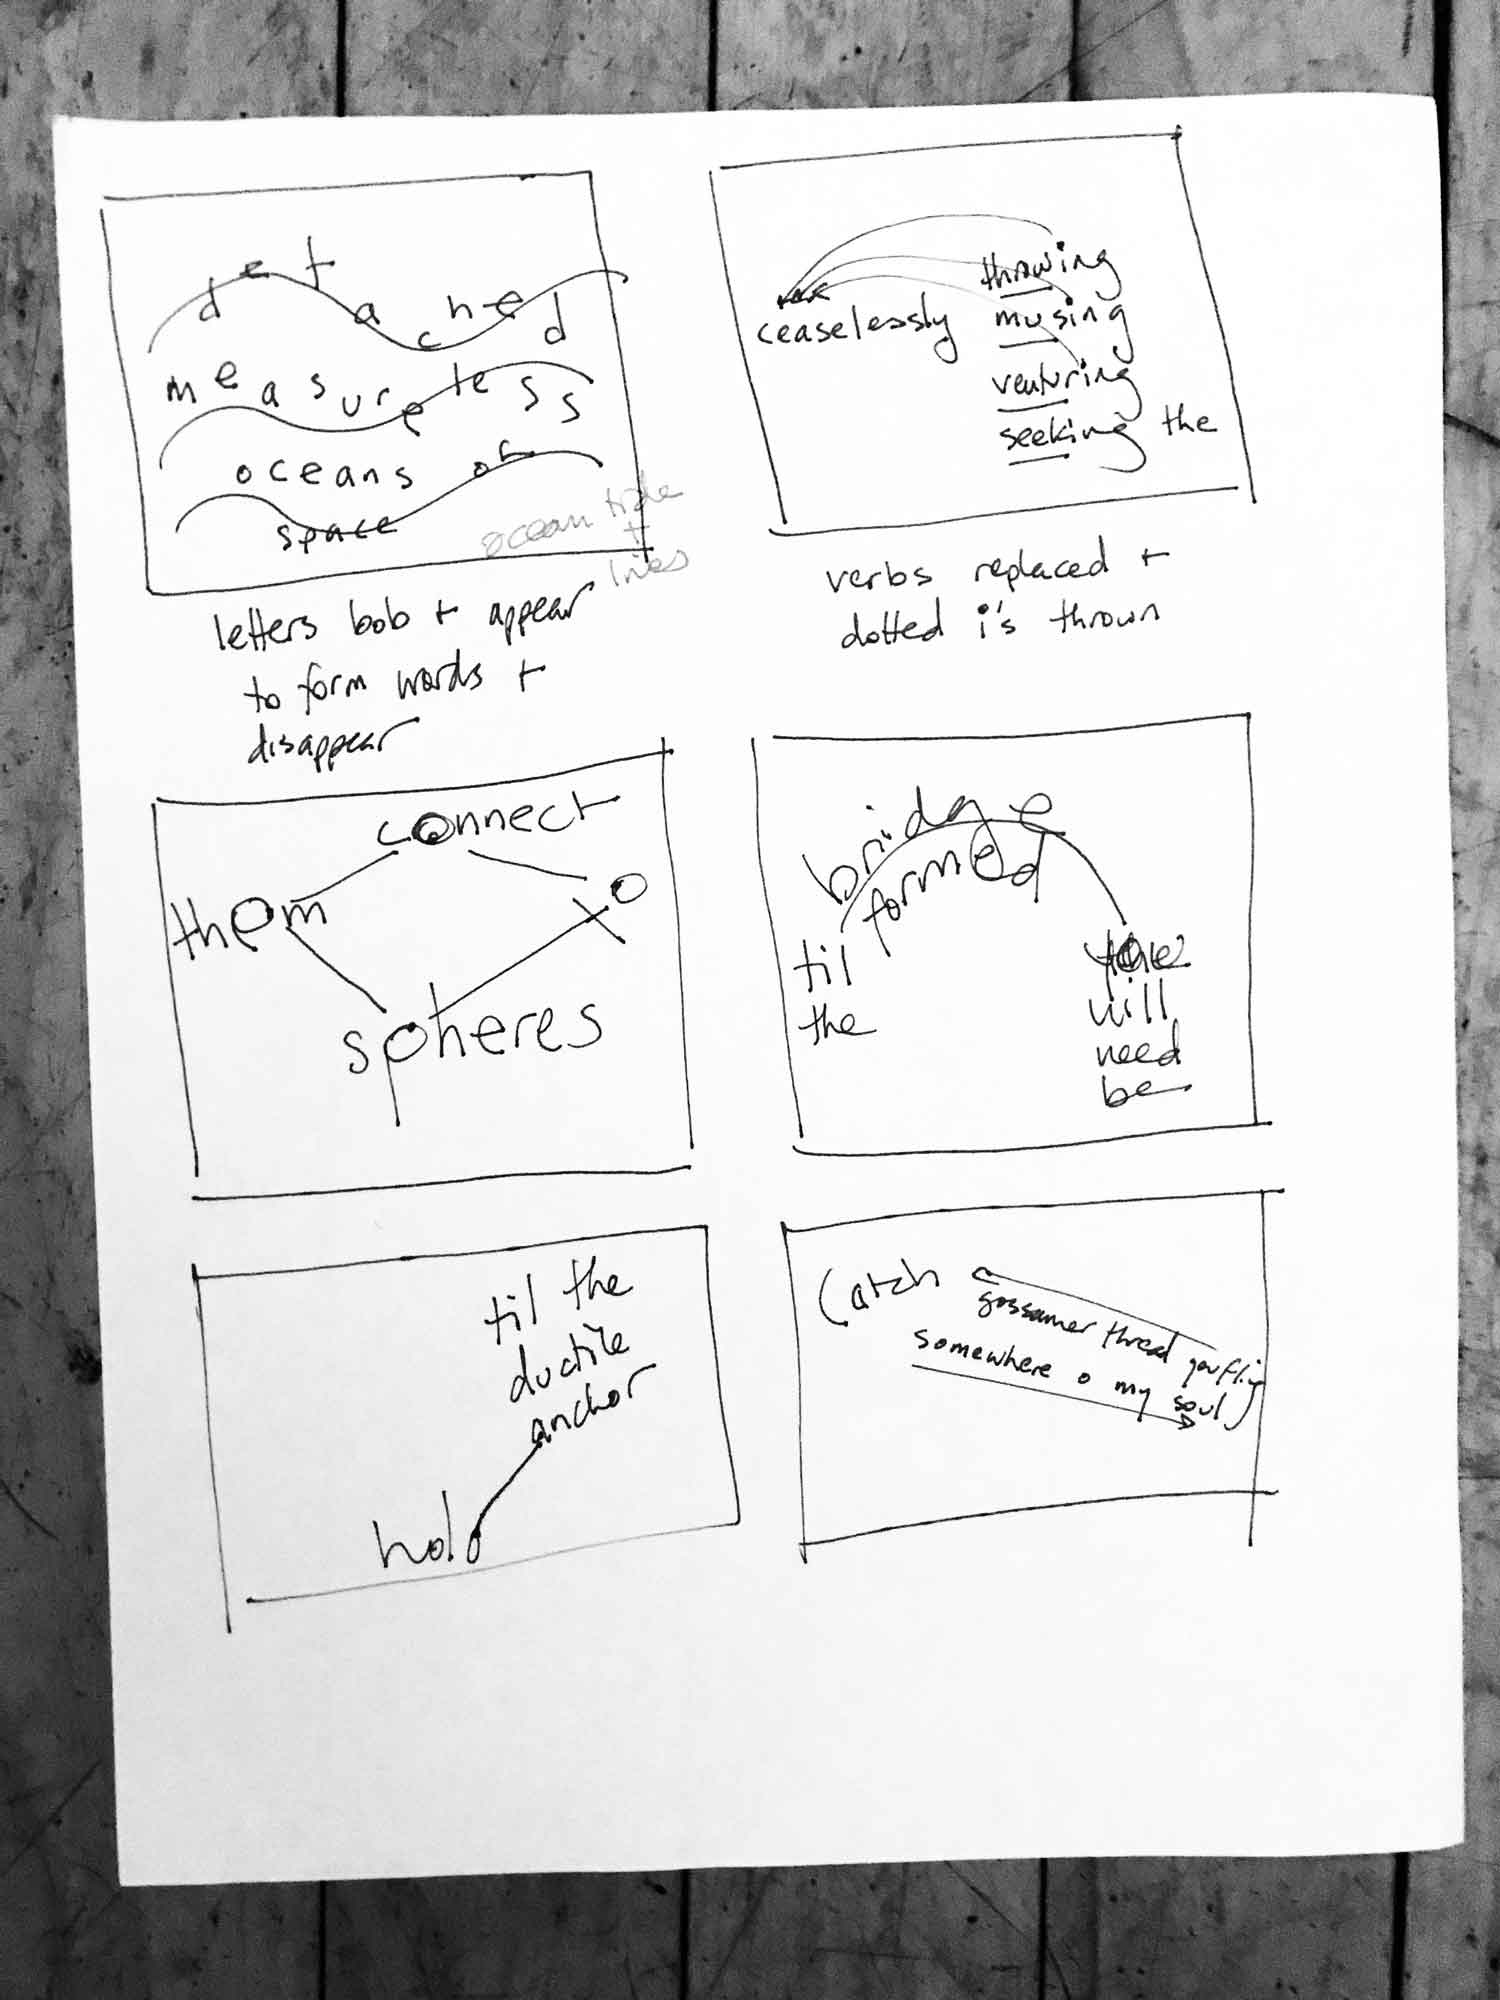 detached
measureless
oceans of
space
ocean tide
+
lines
letters bob + appear
to form words +
disappear
throwing
ceaselessly musing
venturing
seeking the
verbs replaced +
dotted i's thrown
connect
them to
spheres
bridge
formed
til
the
will
need
be
til the
ductile
anchor
hold
Catch
gossamer thread you fling
somewhere o my soul